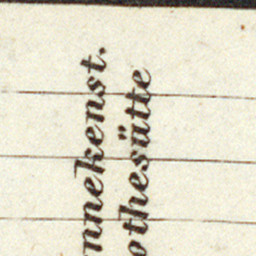 nnekenst.
othesütte